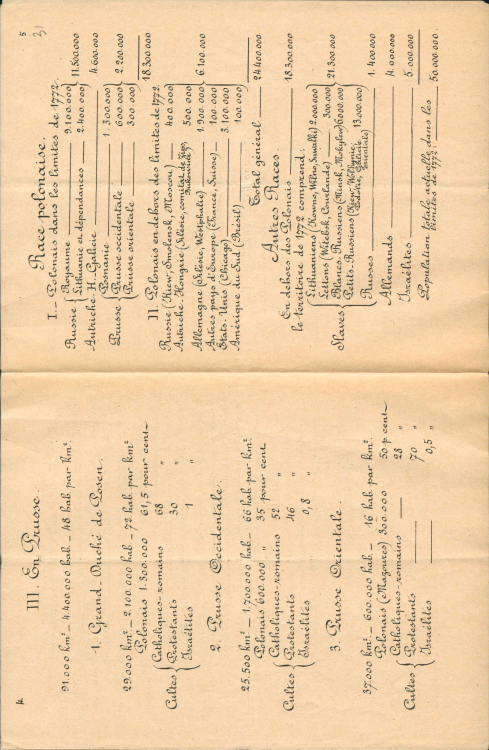 4.
III. En Prusse.
91.000 km² — 4.400.000 hab. — 48 hab. par km².
1. Grand-Duché de Posen.
29.000 km² — 2.100.000 hab. — 72 hab. par km²
Polonais 1.300.000 61,5 pour cent
Cultes { Catholiques-romains 68 "
Protestants 30 "
Israélites 1 "
2. Prusse Occidentale.
25.500 km² — 1.700.000 hab. — 66 hab. par km².
Polonais 600.000 " 35 pour cent
Cultes { Catholiques-romains 52 "
Protestants 46 "
Israélites 0,8 "
3. Prusse Orientale.
37.000 km² — 600.000 hab. — 16 hab. par km²
Polonais (Mazoures) 300.000 50 p cent
Cultes { Catholiques-romains 28 "
Protestants 70 "
Israélites 0,5 "
5
31
Race polonaise.
I. Polonais dans les limites de 1772.
Russie { Royaume 9.100.000 } 11.500.000
Lithuanie et dépendances 2.400.000
Autriche-H. Galicie 4.600.000
Prusse { Posnanie 1.300.000 } 2.200.000
Prusse occidentale 600.000
Prusse orientale 300.000
18.300.000
II. Polonais en dehors des limites de 1772.
Russie (Kiew, Smolensk, Moscou) 400.000
Autriche-Hongrie (Silésie, comitat de Zips, Bukowine) 500.000
Allemagne (Silésie, Westphalie) 1.900.000 } 6.100.000
Autres pays d'Europe (France, Suisse) 100.000
États-Unis (Chicago) 3.100.000
Amérique du Sud (Brésil) 100.000
Total général 24.400.000
Autres Races
En dehors des Polonais 18.300.000
le territoire de 1772 comprend:
Slaves { Lithuaniens (Kowno, Wilno, Suwalki) 2.000.000
Lettons (Witebsk, Courlande) 300.000 } 21.300.000
Blancs-Russiens (Minsk, Mohylew) 6.000.000
Petits-Russiens (Kiew, Wolhynie, Podolie, Galicie orientale) 13.000.000
Russes 1.400.000
Allemands 4.000.000
Israélites 5.000.000
Population totale actuelle dans les limites de 1772. 50.000.000